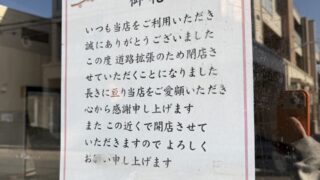 御礼
いつも当店をご利用いただき
誠にありがとうございました
この度 道路拡張のため閉店さ
せていただくことになりました
長きに亘り当店をご愛顧いただき
心から感謝申し上げます
また この近くで開店させて
いただきますので よろしく
お願い申し上げます